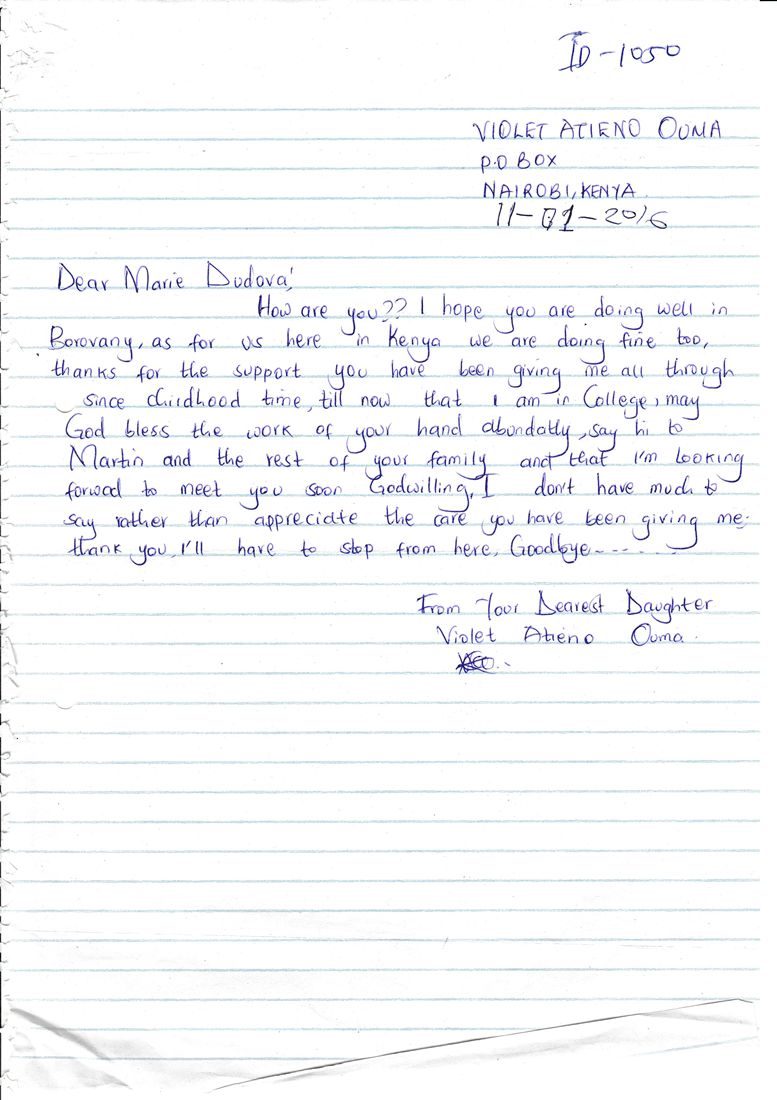 ID-1050
VIOLET ATIENO OUMA
P.O BOX
NAIROBI, KENYA.
11-01-2016
Dear Marie Dudova!
How are you?? I hope you are doing well in
Borovany, as for us here in Kenya we are doing fine too,
thanks for the support you have been giving me all through
since childhood time, till now that I am in College, may
God bless the work of your hand abundatly, say hi to
Martin and the rest of your family and that I'm looking
forwad to meet you soon Godwilling, I don't have much to
say rather than appreciate the care you have been giving me.
thank you, I'll have to stop from here, Goodbye-------
From Your Dearest Daughter
Violet Atieno Ouma.